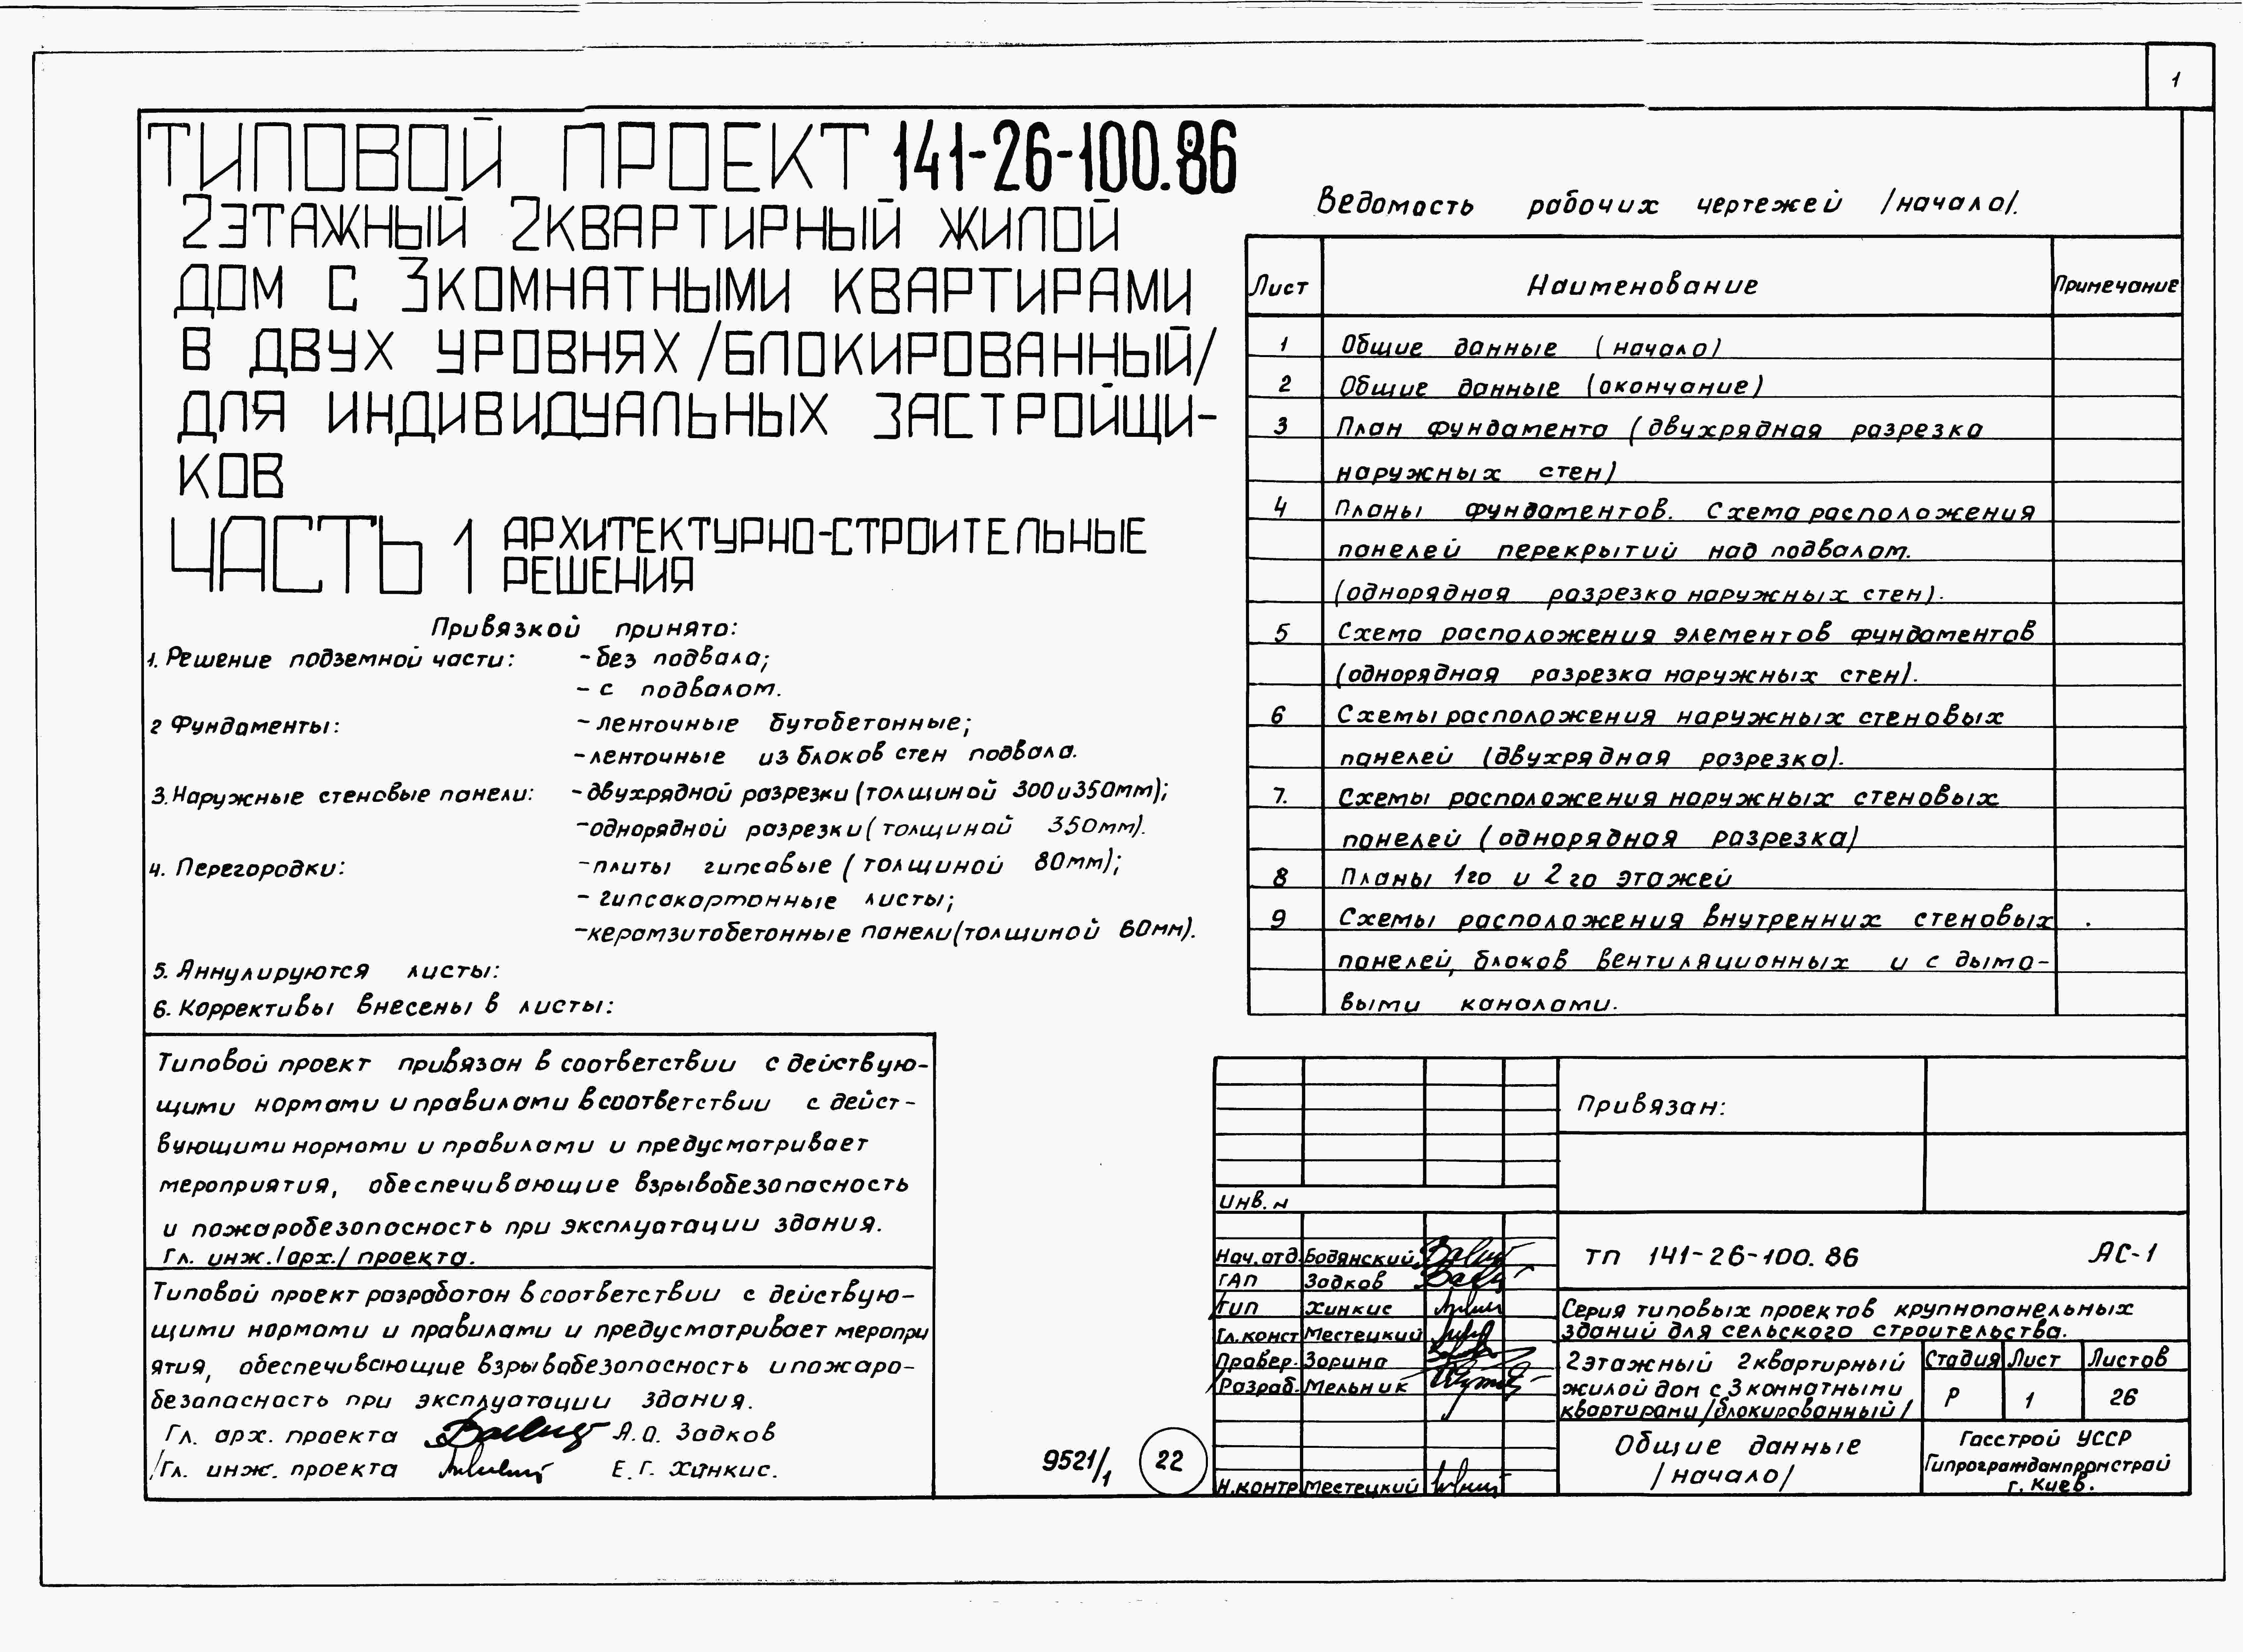 1
ТИПОВОЙ ПРОЕКТ 141-26-100.86
2ЭТАЖНЫЙ 2КВАРТИРНЫЙ ЖИЛОЙ
ДОМ С 3КОМНАТНЫМИ КВАРТИРАМИ
В ДВУХ УРОВНЯХ /БЛОКИРОВАННЫЙ/
ДЛЯ ИНДИВИДУАЛЬНЫХ ЗАСТРОЙЩИ-
КОВ
ЧАСТЬ 1 АРХИТЕКТУРНО-СТРОИТЕЛЬНЫЕ
РЕШЕНИЯ
Привязкой принято:
1. Решение подземной части: - без подвала;
- с подвалом.
2 Фундаменты: - ленточные бутобетонные;
- ленточные из блоков стен подвала.
3. Наружные стеновые панели: - двухрядной разрезки (толщиной 300 и 350мм);
- однорядной разрезки (толщиной 350мм).
4. Перегородки: - плиты гипсовые (толщиной 80мм);
- гипсокартонные листы;
- керамзитобетонные панели (толщиной 60мм).
5. Аннулируются листы:
6. Коррективы внесены в листы:
Типовой проект привязан в соответствии с действую-
щими нормами и правилами в соответствии с дейст-
вующими нормами и правилами и предусматривает
мероприятия, обеспечивающие взрывобезопасность
и пожаробезопасность при эксплуатации здания.
Гл. инж. /арх./ проекта.
Типовой проект разработан в соответствии с действую-
щими нормами и правилами и предусматривает меропри
ятия, обеспечивающие взрывобезопасность и пожаро-
безопасность при эксплуатации здания.
Гл. арх. проекта А.О. Задков
/Гл. инж. проекта Е.Г. Хинкис.
Ведомость рабочих чертежей /начало/.
Лист Наименование Примечание
1 Общие данные (начало)
2 Общие данные (окончание)
3 План фундамента (двухрядная разрезка
наружных стен)
4 Планы фундаментов. Схема расположения
панелей перекрытий над подвалом.
(однорядная разрезка наружных стен).
5 Схема расположения элементов фундаментов
(однорядная разрезка наружных стен).
6 Схемы расположения наружных стеновых
панелей (двухрядная разрезка).
7. Схемы расположения наружных стеновых
панелей (однорядная разрезка)
8 Планы 1го и 2го этажей
9 Схемы расположения внутренних стеновых
панелей, блоков вентиляционных и с дымо-
выми каналами.
9521/1 22
Привязан:
Инв. N
Нач. отд. Бодянский
ГАП Задков
ГИП Хинкис
Гл. конст Местецкий
Провер. Зорина
Разраб. Мельник
Н. контр Местецкий
ТП 141-26-100.86 АС-1
Серия типовых проектов крупнопанельных
зданий для сельского строительства.
2этажный 2квартирный
жилой дом с 3 комнатными
квартирами /блокированный/
Стадия Лист Листов
Р 1 26
Общие данные
/начало/
Госстрой УССР
Гипрогражданпромстрой
г. Киев.